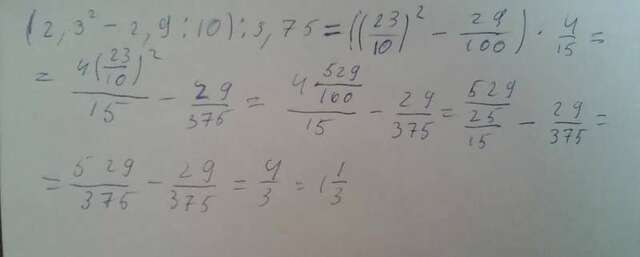 (2,3² - 2,9 : 10) : 3,75 = ((23/10)² - 29/100) · 4/15 =
= 4(23/10)²/15 - 29/375 = 4 529/100/15 - 29/375 = 529/25/15 - 29/375 =
= 529/375 - 29/375 = 4/3 = 1 1/3